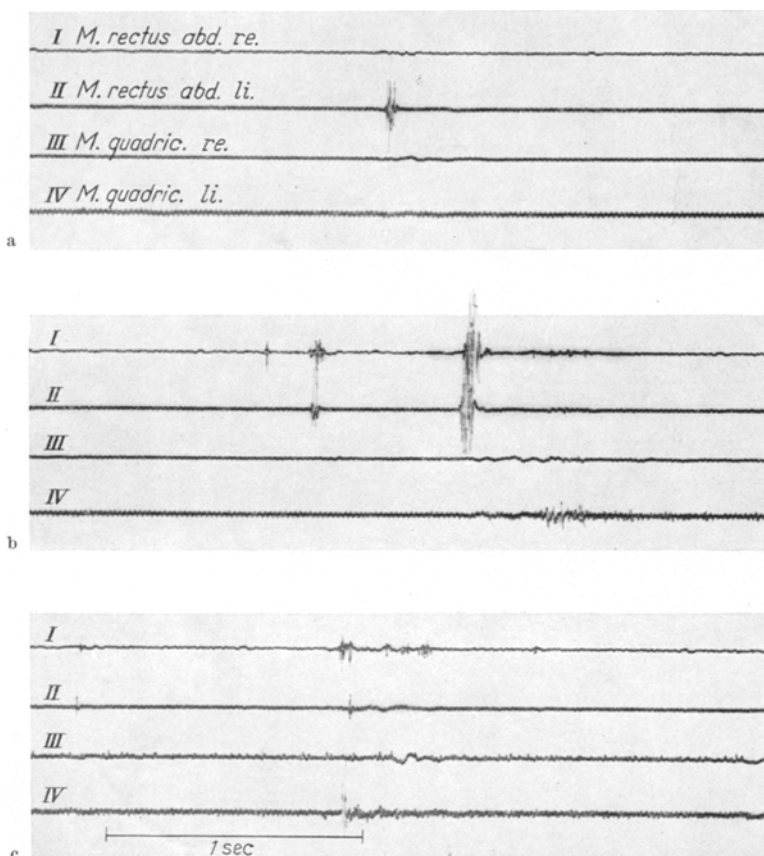 I M. rectus abd. re.
II M. rectus abd. li.
III M. quadric. re.
IV M. quadric. li.
a
I
II
III
IV
b
I
II
III
IV
1 sec
c